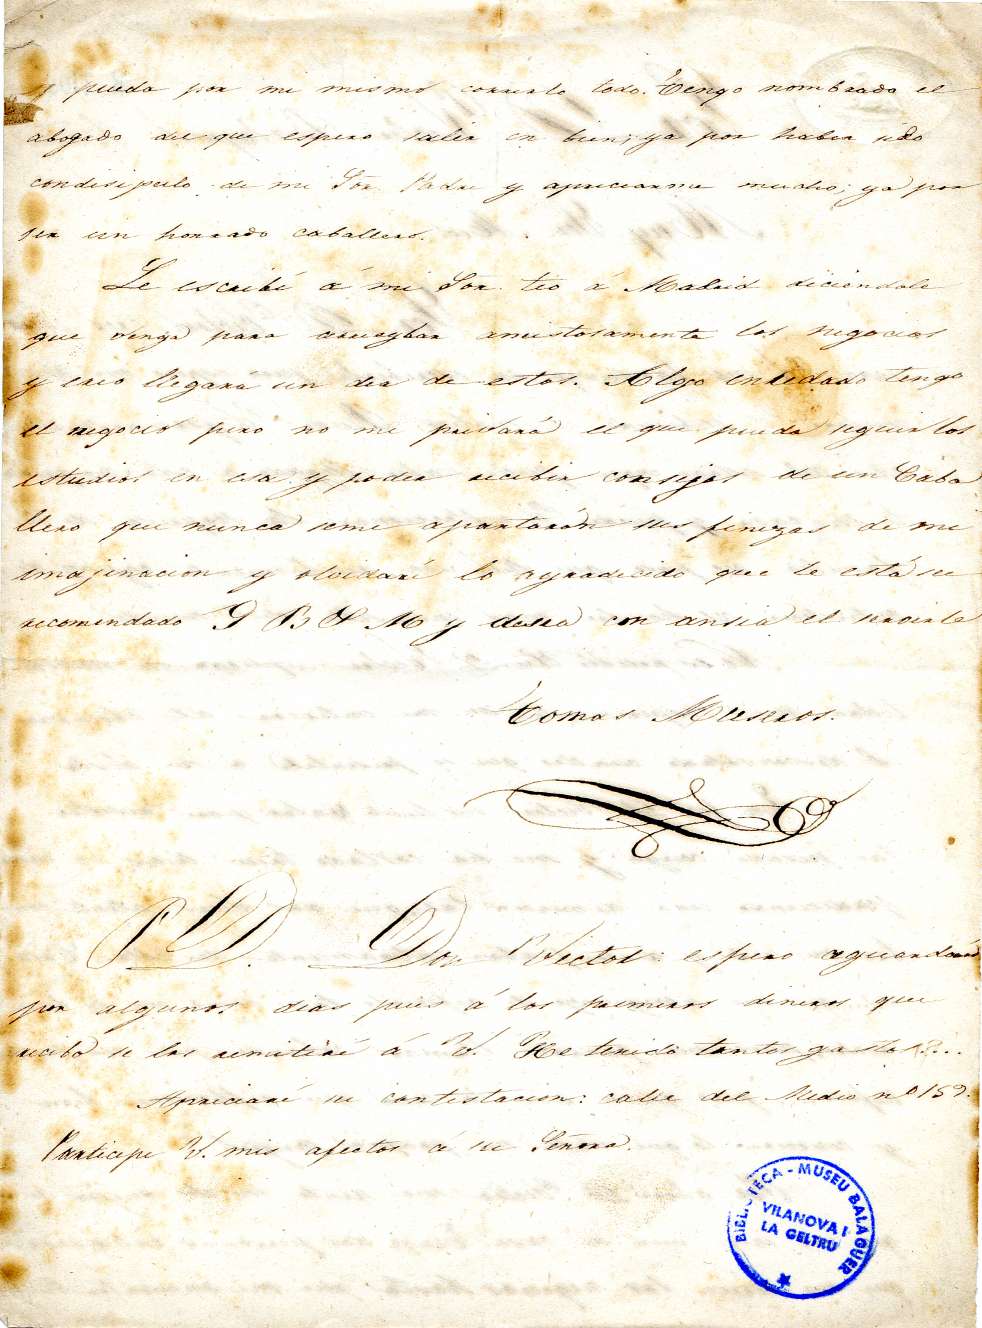 y pueda por mi mismo correrlo todo. Tengo nombrado el
abogado del que espero salir en bien, ya por haber sido
condisipulo de mi Sor. Padre y apreciarme mucho; ya por
ser un honrado caballero.
Le escribí á mi Sor. tio á Madrid diciendole
que venga para arreglar amistosamente los negocios
y creo llegará un dia de estos. Algo enredado tengo
el negocio pero no me privará el que pueda seguir los
estudios en esa y poder recibir consejos de un Caba
llero que nunca seme apartarán sus finezas de mi
imajinacion y olvidaré lo agradecido que le está su
recomendado Q B S M y desea con ansia el servirle
Tomas Meseros.
P D. Don Victor: espero aguardará
por algunos dias pues á los primeros dineros que
reciba se los remitiré á V. He tenido tantos gastos?...
Apreciaré su contestacion: calle del Medio nº 159.
Participe V. mis afectos á su Señora.
BIBLIOTECA - MUSEU BALAGUER
VILANOVA I
LA GELTRU